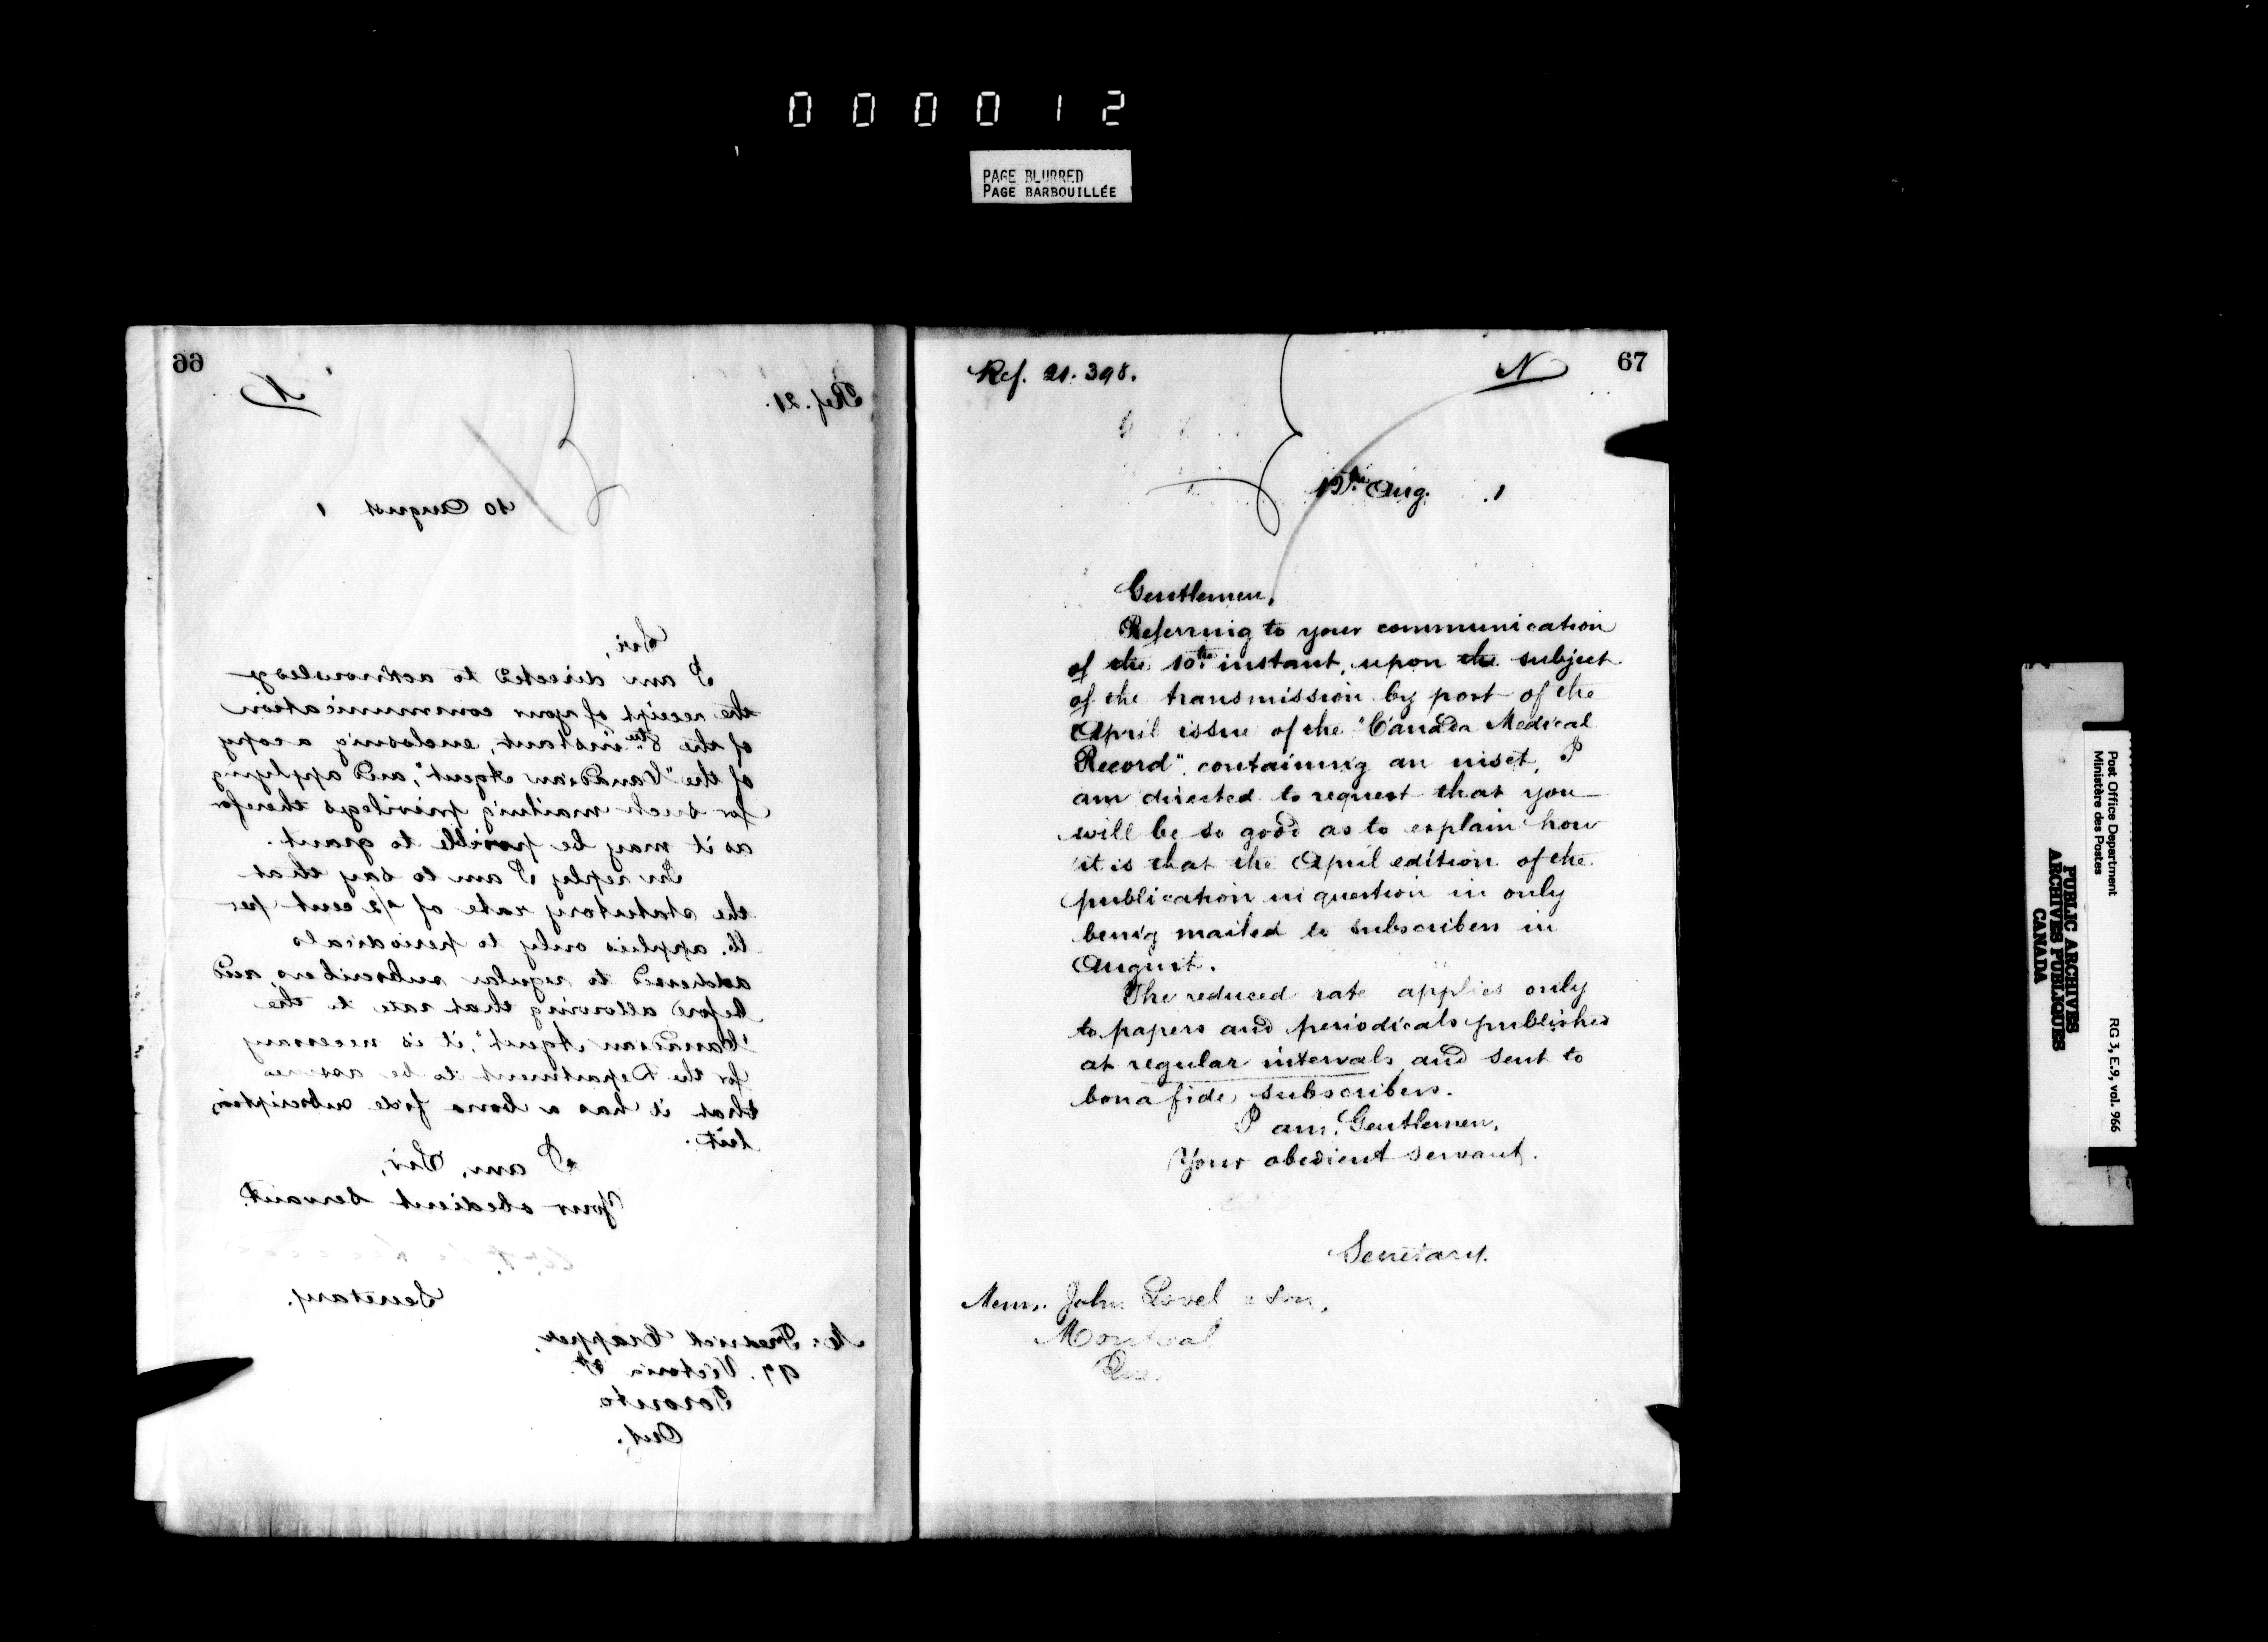 000012
PAGE BLURRED
PAGE BARBOUILLÉE
66
N
Ref. 21.
10 August 1
Sir,
I am directed to acknowledge
the receipt of your communication
of the 8th instant, enclosing a copy
of the "Canadian Agent", and applying
for such mailing privileges therefor
as it may be possible to grant.
In reply I am to say that
the statutory rate of 1/2 cent per
lb. applies only to periodicals
addressed to regular subscribers, and
before allowing that rate to the
"Canadian Agent", it is necessary
for the Department to be assured
that it has a bona fide subscription
list.
I am, Sir,
Your obedient servant.
Secretary.
Mr. Fredrick Crapper,
97. Victoria St.
Toronto
Ont.
Ref. 21. 398.
N
67
12th Aug. .1
Gentlemen,
Referring to your communication
of the 10th instant, upon the subject
of the transmission by post of the
April issue of the "Canada Medical
Record", containing an inset, I
am directed to request that you
will be so good as to explain how
it is that the April edition of the
publication in question in only
being mailed to subscribers in
August.
The reduced rate applies only
to papers and periodicals published
at regular intervals and sent to
bona fide subscribers.
I am, Gentlemen,
Your obedient servant.
Secretary.
Messrs. John Lovel & Son,
Montreal
Que.
Post Office Department
Ministère des Postes
RG 3, E.9, vol. 966
PUBLIC ARCHIVES
ARCHIVES PUBLIQUES
CANADA